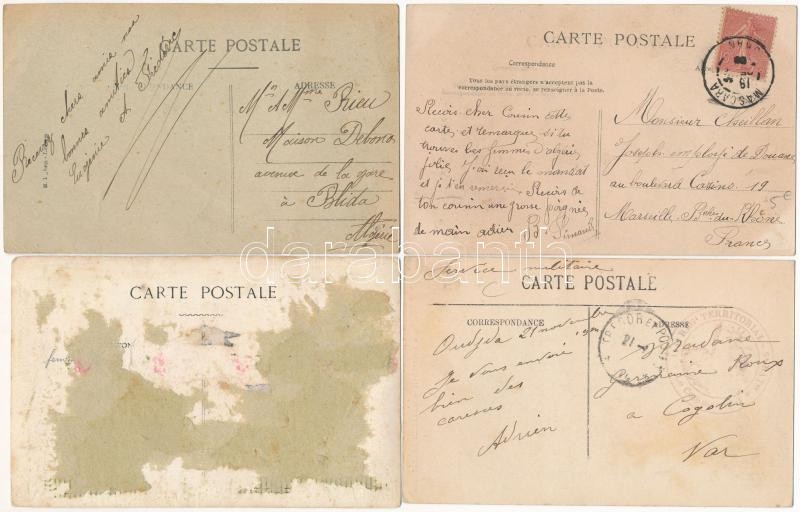 CARTE POSTALE
ADRESSE
Recevez chère amie nos
bonnes amitiés
Eugénie et
Mr & Mme Rieu
Maison Debono
avenue de la gare
à Blida
Algérie
CARTE POSTALE
Correspondance
Tous les pays étrangers n'acceptent pas la
correspondance au recto, se renseigner à la Poste.
MASCARA
ORAN
Reçois cher Cousin cette
carte et remarque si tu
trouves les femmes d'algérie
jolies J'ai reçu le mandat
et je t'en remercie Reçois de
ton cousin une grosse poignée
de main adieu
Monsieur Cheillan
Joseph employé de Douane
au boulevard Cassini 19
Marseille Bches-du-Rhône
France
5€
darabanth
CARTE POSTALE
Service militaire
CARTE POSTALE
CORRESPONDANCE
ADRESSE
Oudjda 21 novembre
Je vous envoie
bien des
caresses
Adrien
TRESOR ET POSTES
21
TERRITORIAL
Madame
Germaine Roux
à Cogolin
Var